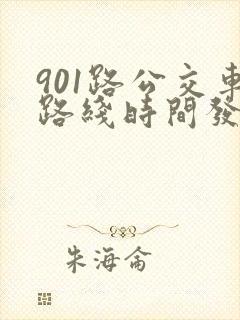 901路公交車
路綫時間發
朱海侖